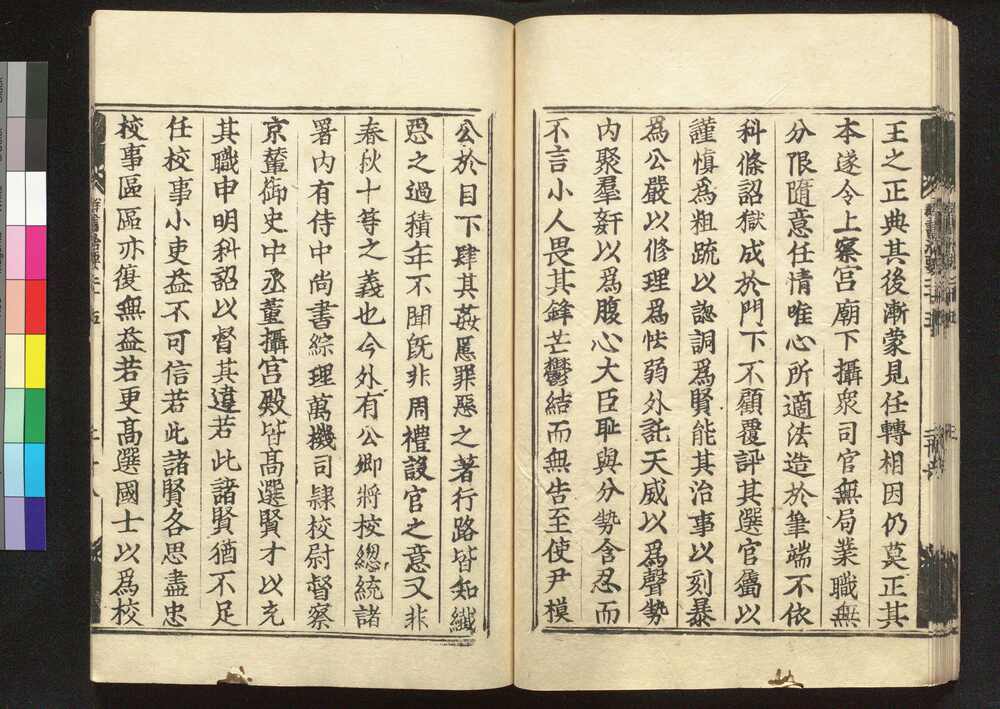 王之正典其後漸蒙見任轉相因仍莫正其
本遂令上察宮廟下攝衆司官無局業職無
分限隨意任情唯心所適法造於筆端不依
科條詔獄成於門下不顧覆評其選官屬以
謹愼爲粗疏以謥詷爲賢能其治事以刻暴
爲公嚴以修理爲怯弱外託天威以爲聲勢
內聚羣姧以爲腹心大臣耻與分勢含忍而
不言小人畏其鋒芒鬱結而無告至使尹模
公於目下肆其姦慝罪惡之著行路皆知纎
惡之過積年不聞旣非周禮設官之意又非
春秋十等之義也今外有公卿將校總統諸
署內有侍中尚書綜理萬機司隷校尉督察
京輦御史中丞董攝宮殿皆髙選賢才以充
其職申明科詔以督其違若此諸賢猶不足
任校事小吏益不可信若此諸賢各思盡忠
校事區區亦復無益若更髙選國士以爲校